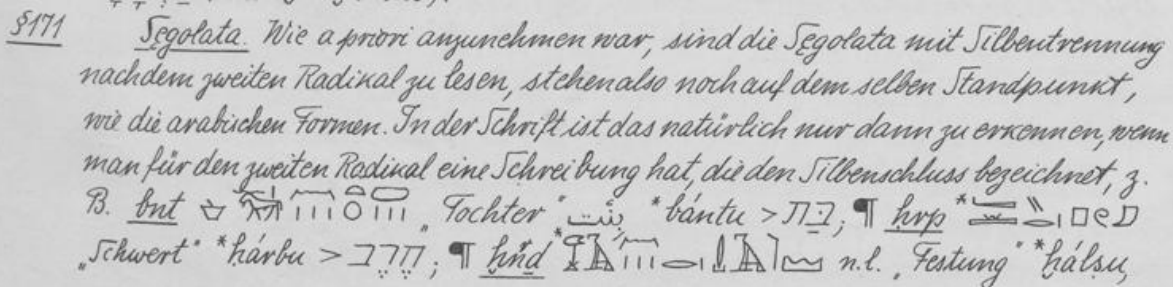 §171 Sęgolata. Wie a priori anzunehmen war, sind die Sęgolata mit Silbentrennung
nach dem zweiten Radikal zu lesen, stehen also noch auf dem selben Standpunkt,
wie die arabischen Formen. In der Schrift ist das natürlich nur dann zu erkennen, wenn
man für den zweiten Radikal eine Schreibung hat, die den Silbenschluss bezeichnet, z.
B. bnt „Tochter“ بِنْت *bántu > בַּת; ¶ ḫrp
„Schwert“ *ḥárbu > חֶרֶב; ¶ n.l. „Festung“ *ḫálṣu,